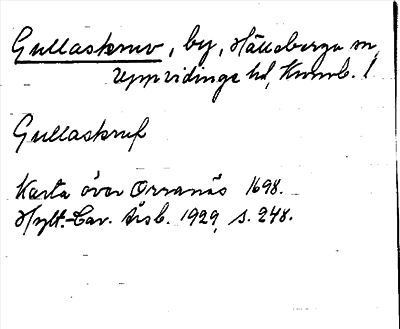 Gullaskruv, by, Hälleberga sn,
Uppvidinge hd, Kronob. l.
Gullaskruf
Karta över Orranäs 1698.
Hylt.-Cav. Årsb. 1929, s. 248.